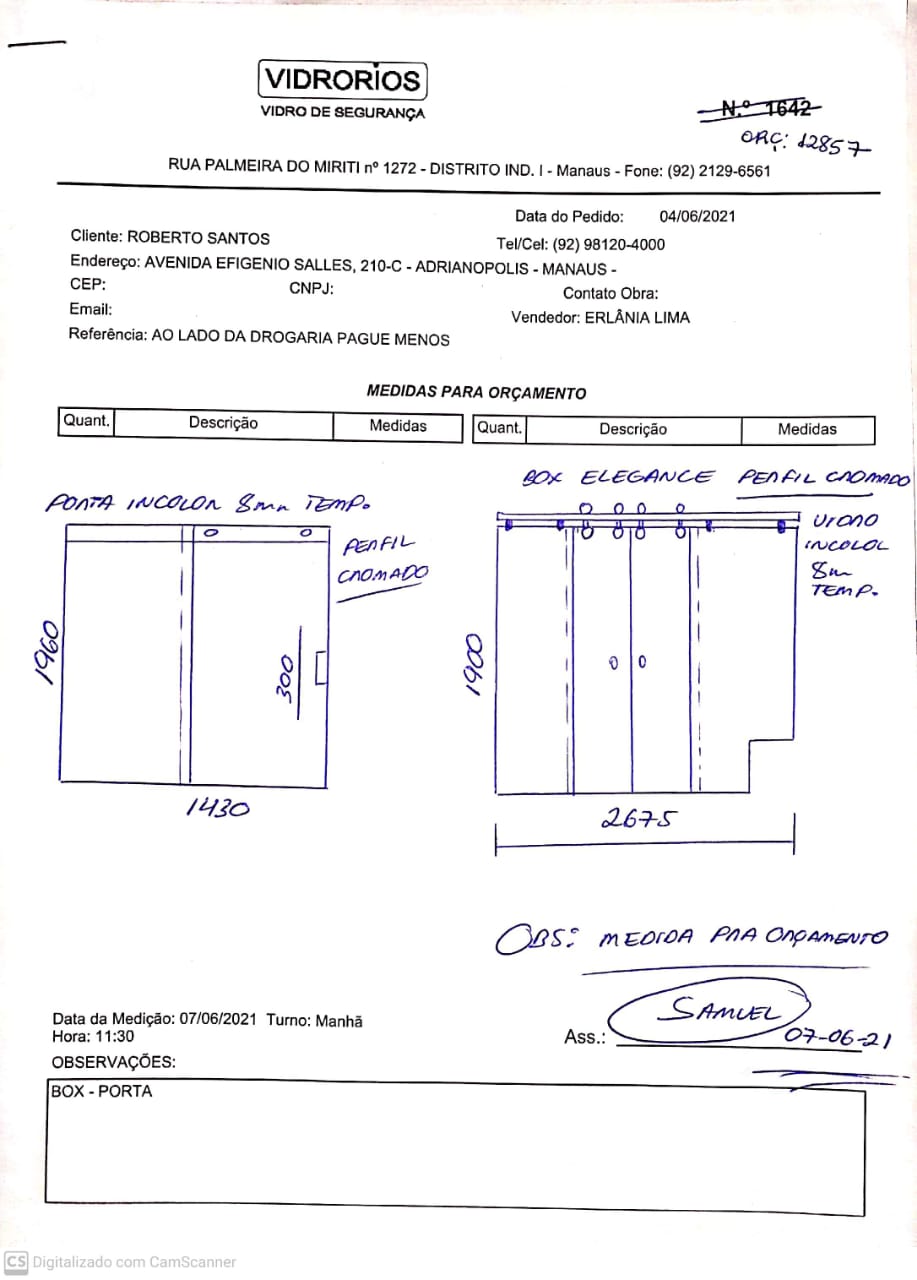 VIDRORIOS
VIDRO DE SEGURANÇA
N.º 1642
ORÇ: 12857
RUA PALMEIRA DO MIRITI nº 1272 - DISTRITO IND. I - Manaus - Fone: (92) 2129-6561
Data do Pedido: 04/06/2021
Cliente: ROBERTO SANTOS
Tel/Cel: (92) 98120-4000
Endereço: AVENIDA EFIGENIO SALLES, 210-C - ADRIANOPOLIS - MANAUS -
CEP: CNPJ: Contato Obra:
Email:
Vendedor: ERLÂNIA LIMA
Referência: AO LADO DA DROGARIA PAGUE MENOS
MEDIDAS PARA ORÇAMENTO
Quant. Descrição Medidas Quant. Descrição Medidas
PORTA INCOLOR 8mm TEMP.
PERFIL
CROMADO
1960
300
1430
BOX ELEGANCE PERFIL CROMADO
VIDRO
INCOLOL
8m
TEMP.
1900
2675
OBS: MEDIDA PRA ORÇAMENTO
Data da Medição: 07/06/2021 Turno: Manhã
Hora: 11:30
Ass.: SAMUEL
07-06-21
OBSERVAÇÕES:
BOX - PORTA
CS Digitalizado com CamScanner